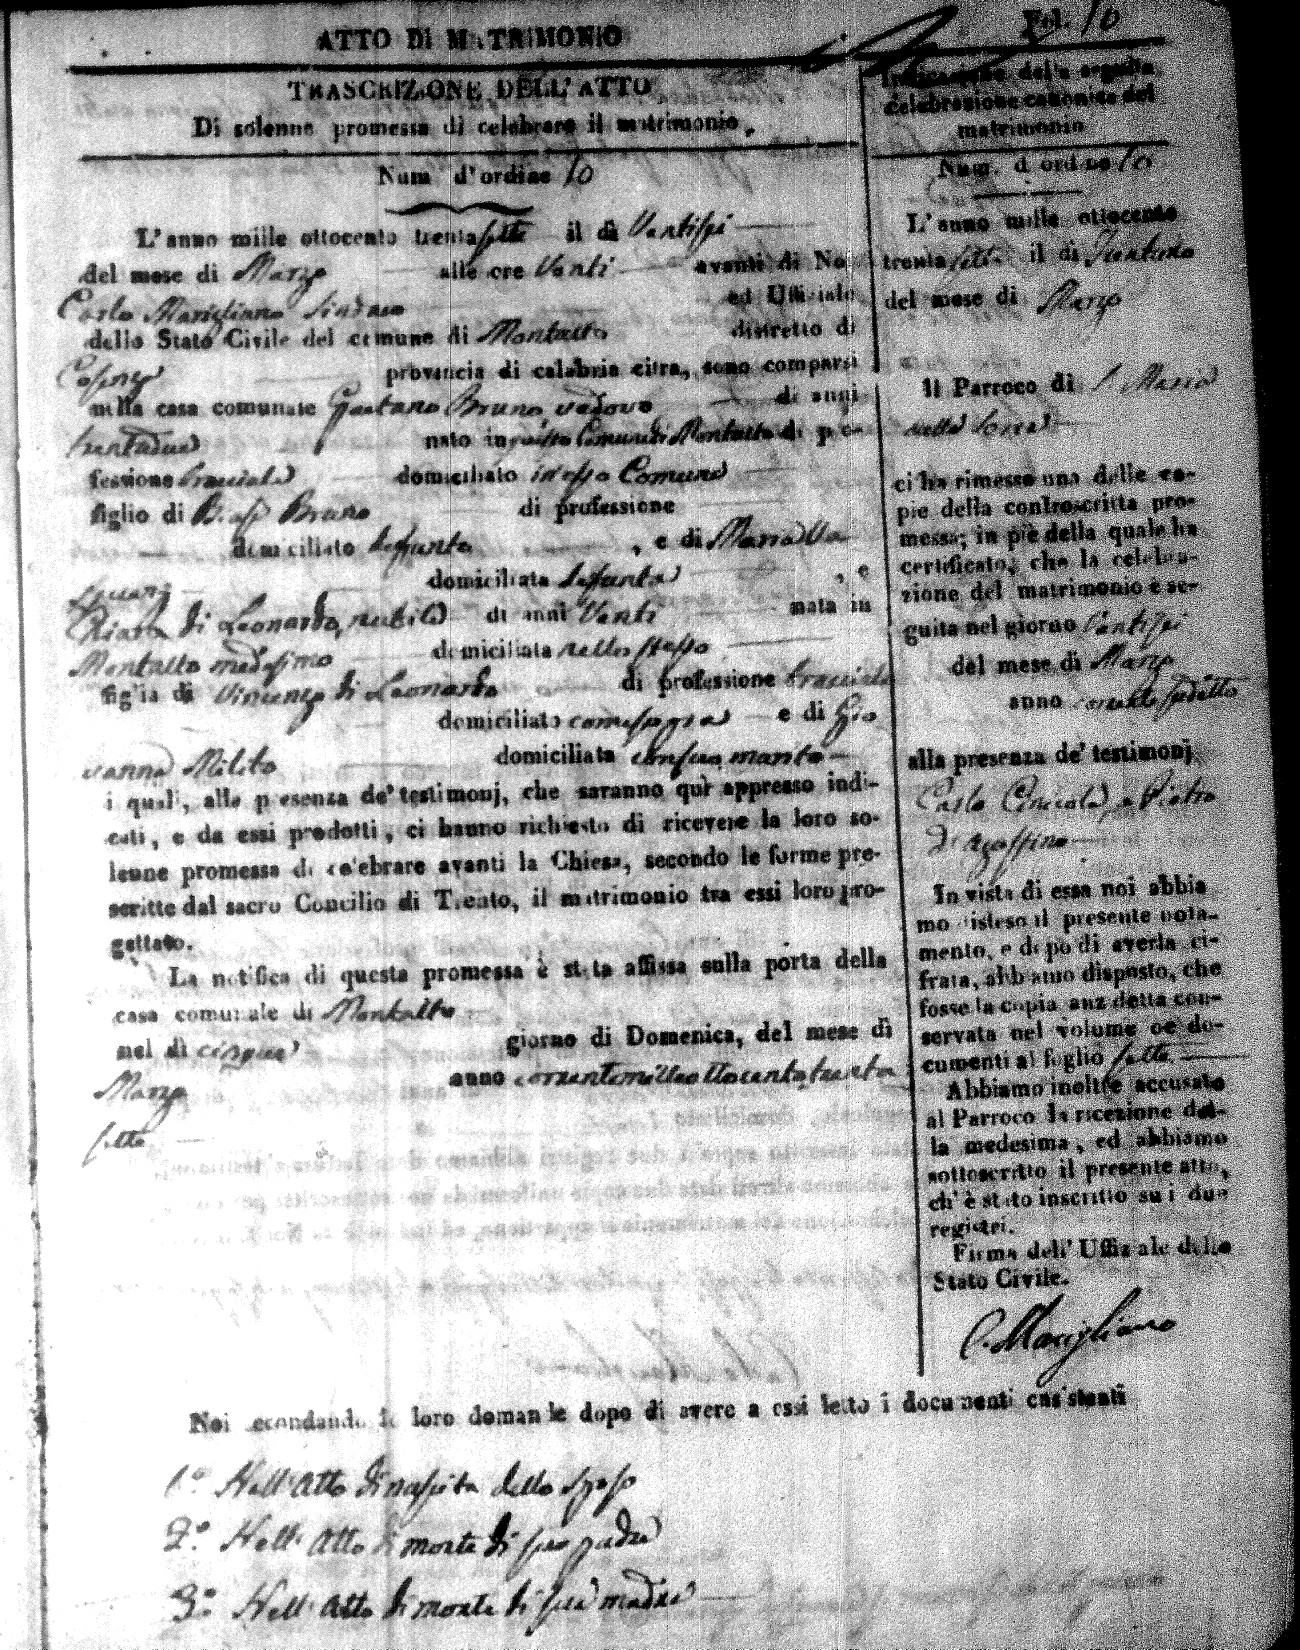 Fol. 10
ATTO DI MATRIMONIO
TRASCRIZIONE DELL'ATTO
Di solenne promessa di celebrare il matrimonio.
Num d'ordine 10
L'anno mille ottocento trentasette il dì Ventisei
del mese di Marzo alle ore Venti avanti di Noi
Carlo Marigliano Sindaco ed Uffiziale
dello Stato Civile del comune di Montalto distretto di
Cosenza provincia di calabria citra, sono comparsi
nella casa comunale Gaetano Bruno vedovo di anni
trentadue nato in questo Comune di Montalto di pro-
fessione bracciale domiciliato in esso Comune
figlio di Biase Bruno di professione
domiciliato defunto , e di Maria
domiciliata defunta , e
Chiara di Leonardo, nubile di anni Venti nata in
Montalto medesimo domiciliata nello stesso
figlia di Vincenzo di Leonardo di professione bracciale
domiciliato come sopra e di Gio
vanna Milito domiciliata con suo marito
i quali, alla presenza de' testimonj, che saranno quì appresso indi-
cati, e da essi prodotti, ci hanno richiesto di ricevere la loro so-
lenne promessa di celebrare avanti la Chiesa, secondo le forme pre-
scritte dal sacro Concilio di Trento, il matrimonio tra essi loro pro-
gettato.
La notifica di questa promessa è stata affissa sulla porta della
casa comunale di Montalto
nel dì cinque giorno di Domenica, del mese di
Marzo anno corrente mille ottocento trenta
sette
celebrazione canonica del
matrimonio
Num. d'ordine 10
L'anno mille ottocento
trentasette il di Trentuno
del mese di Marzo
Il Parroco di S. Maria
della Serra
ci ha rimesso una delle co-
pie della controscritta pro-
messa; in piè della quale ha
certificato, che la celebra-
zione del matrimonio è se-
guita nel giorno Ventisei
del mese di Marzo
anno corrente sudetto
alla presenza de' testimonj
Carlo e Pietro
In vista di essa noi abbia
mo disteso il presente nota-
mento, e dopo di averla ci-
frata, abbiamo disposto, che
fosse la copia anzidetta con-
servata nel volume de do-
cumenti al foglio sette
Abbiamo inoltre accusato
al Parroco la ricezione del-
la medesima, ed abbiamo
sottoscritto il presente atto,
ch' è stato inscritto su i due
registri.
Firma dell' Uffiziale dello
Stato Civile.
C. Marigliano
Noi secondando le loro domande dopo di avere a essi letto i documenti consistenti
1.º Nell'Atto di nascita dello sposo
2.º Nell'Atto di morte di suo padre
3.º Nell'Atto di morte di sua madre